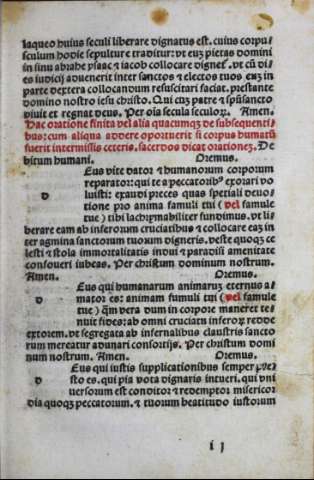 laqueo huius seculi liberare dignatus est. cuius corpu⸗
sculum hodie sepulture traditur: vt euʒ pietas domini
in sinu abrahe ysaac ⁊ iacob collocare dignet̉. vt cū di⸗
es iudicij aduenerit inter sanctos ⁊ electos tuos euʒ in
parte dextera collocandum resuscitari faciat. prestante
domino nostro iesu christo. Qui cuʒ patre ⁊ sp̄usancto
viuit et regnat deus. Per oīa secula seculoꝝ. Amen.
Hac oratione finita vel alia quacumqʒ de subsequenti⸗
bus: cum aliqua addere oportuerit si corpus humatū
fuerit intermissis ceteris. sacerdos dicat orationeʒ. De
bitum humani. Oremus.
d Eus vite dator ⁊ humanorum corporum
reparator: qui te a peccatoribꝰ exorari vo
luisti: exaudi preces quas speciali deuo⸗
tione pro anima famuli tui (vel famule
tue) tibi lachrymabiliter fundimus. vt li⸗
berare eam ab infernorum cruciatibus ⁊ collocare eaʒ in
ter agmina sanctorum tuorum digneris. veste quoqʒ ce
lesti ⁊ stola immortalitatis indui ⁊ paradisi amenitate
confoueri iubeas. Per christum dominum nostrum.
Amen. Oremus.
d Eus qui humanarum animarum eternus a⸗
mator es: animam famuli tui (vel famule
tue) quā vera dum in corpore maneret te⸗
nuit fides: ab omni cruciatu inferoꝝ redde
extorrem. vt segregata ab infernalibus claustris sancto
rum mereatur adunari consortijs. Per christum domi
num nostrum. Amen. Oremus.
d Eus qui iustis supplicationibus semper pre⸗
sto es. qui pia vota dignaris intueri. qui vni
uersorum est conditor ⁊ redemptor misericor
dia quoqʒ peccatorum. ⁊ tuorum beatitudo iustorum
i j